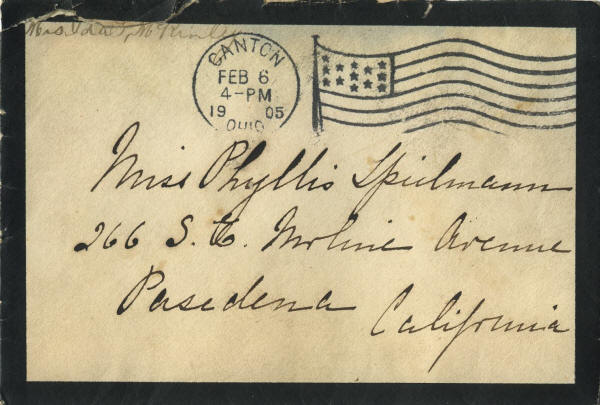 Mrs. Ida S. McKinley
CANTON
FEB 6
4-PM
19 05
OHIO
Miss Phyllis Spielmann
266 S. Moline Avenue
Pasedena
California